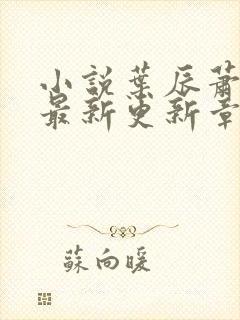 小説葉辰蕭
最新更新章
蘇向暖